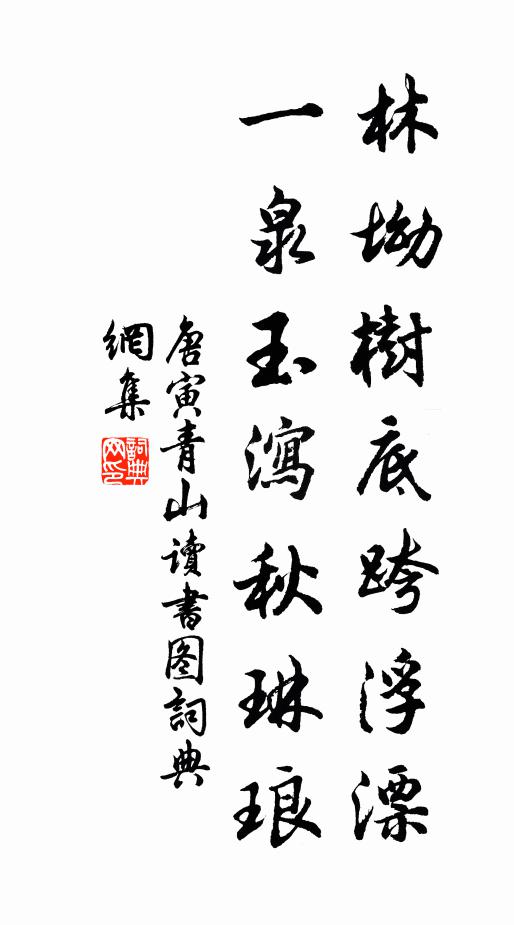 林坳樹底跨浮漂
一泉玉瀉秋琳琅
唐寅青山讀書图詞典
網集
詞典
网印